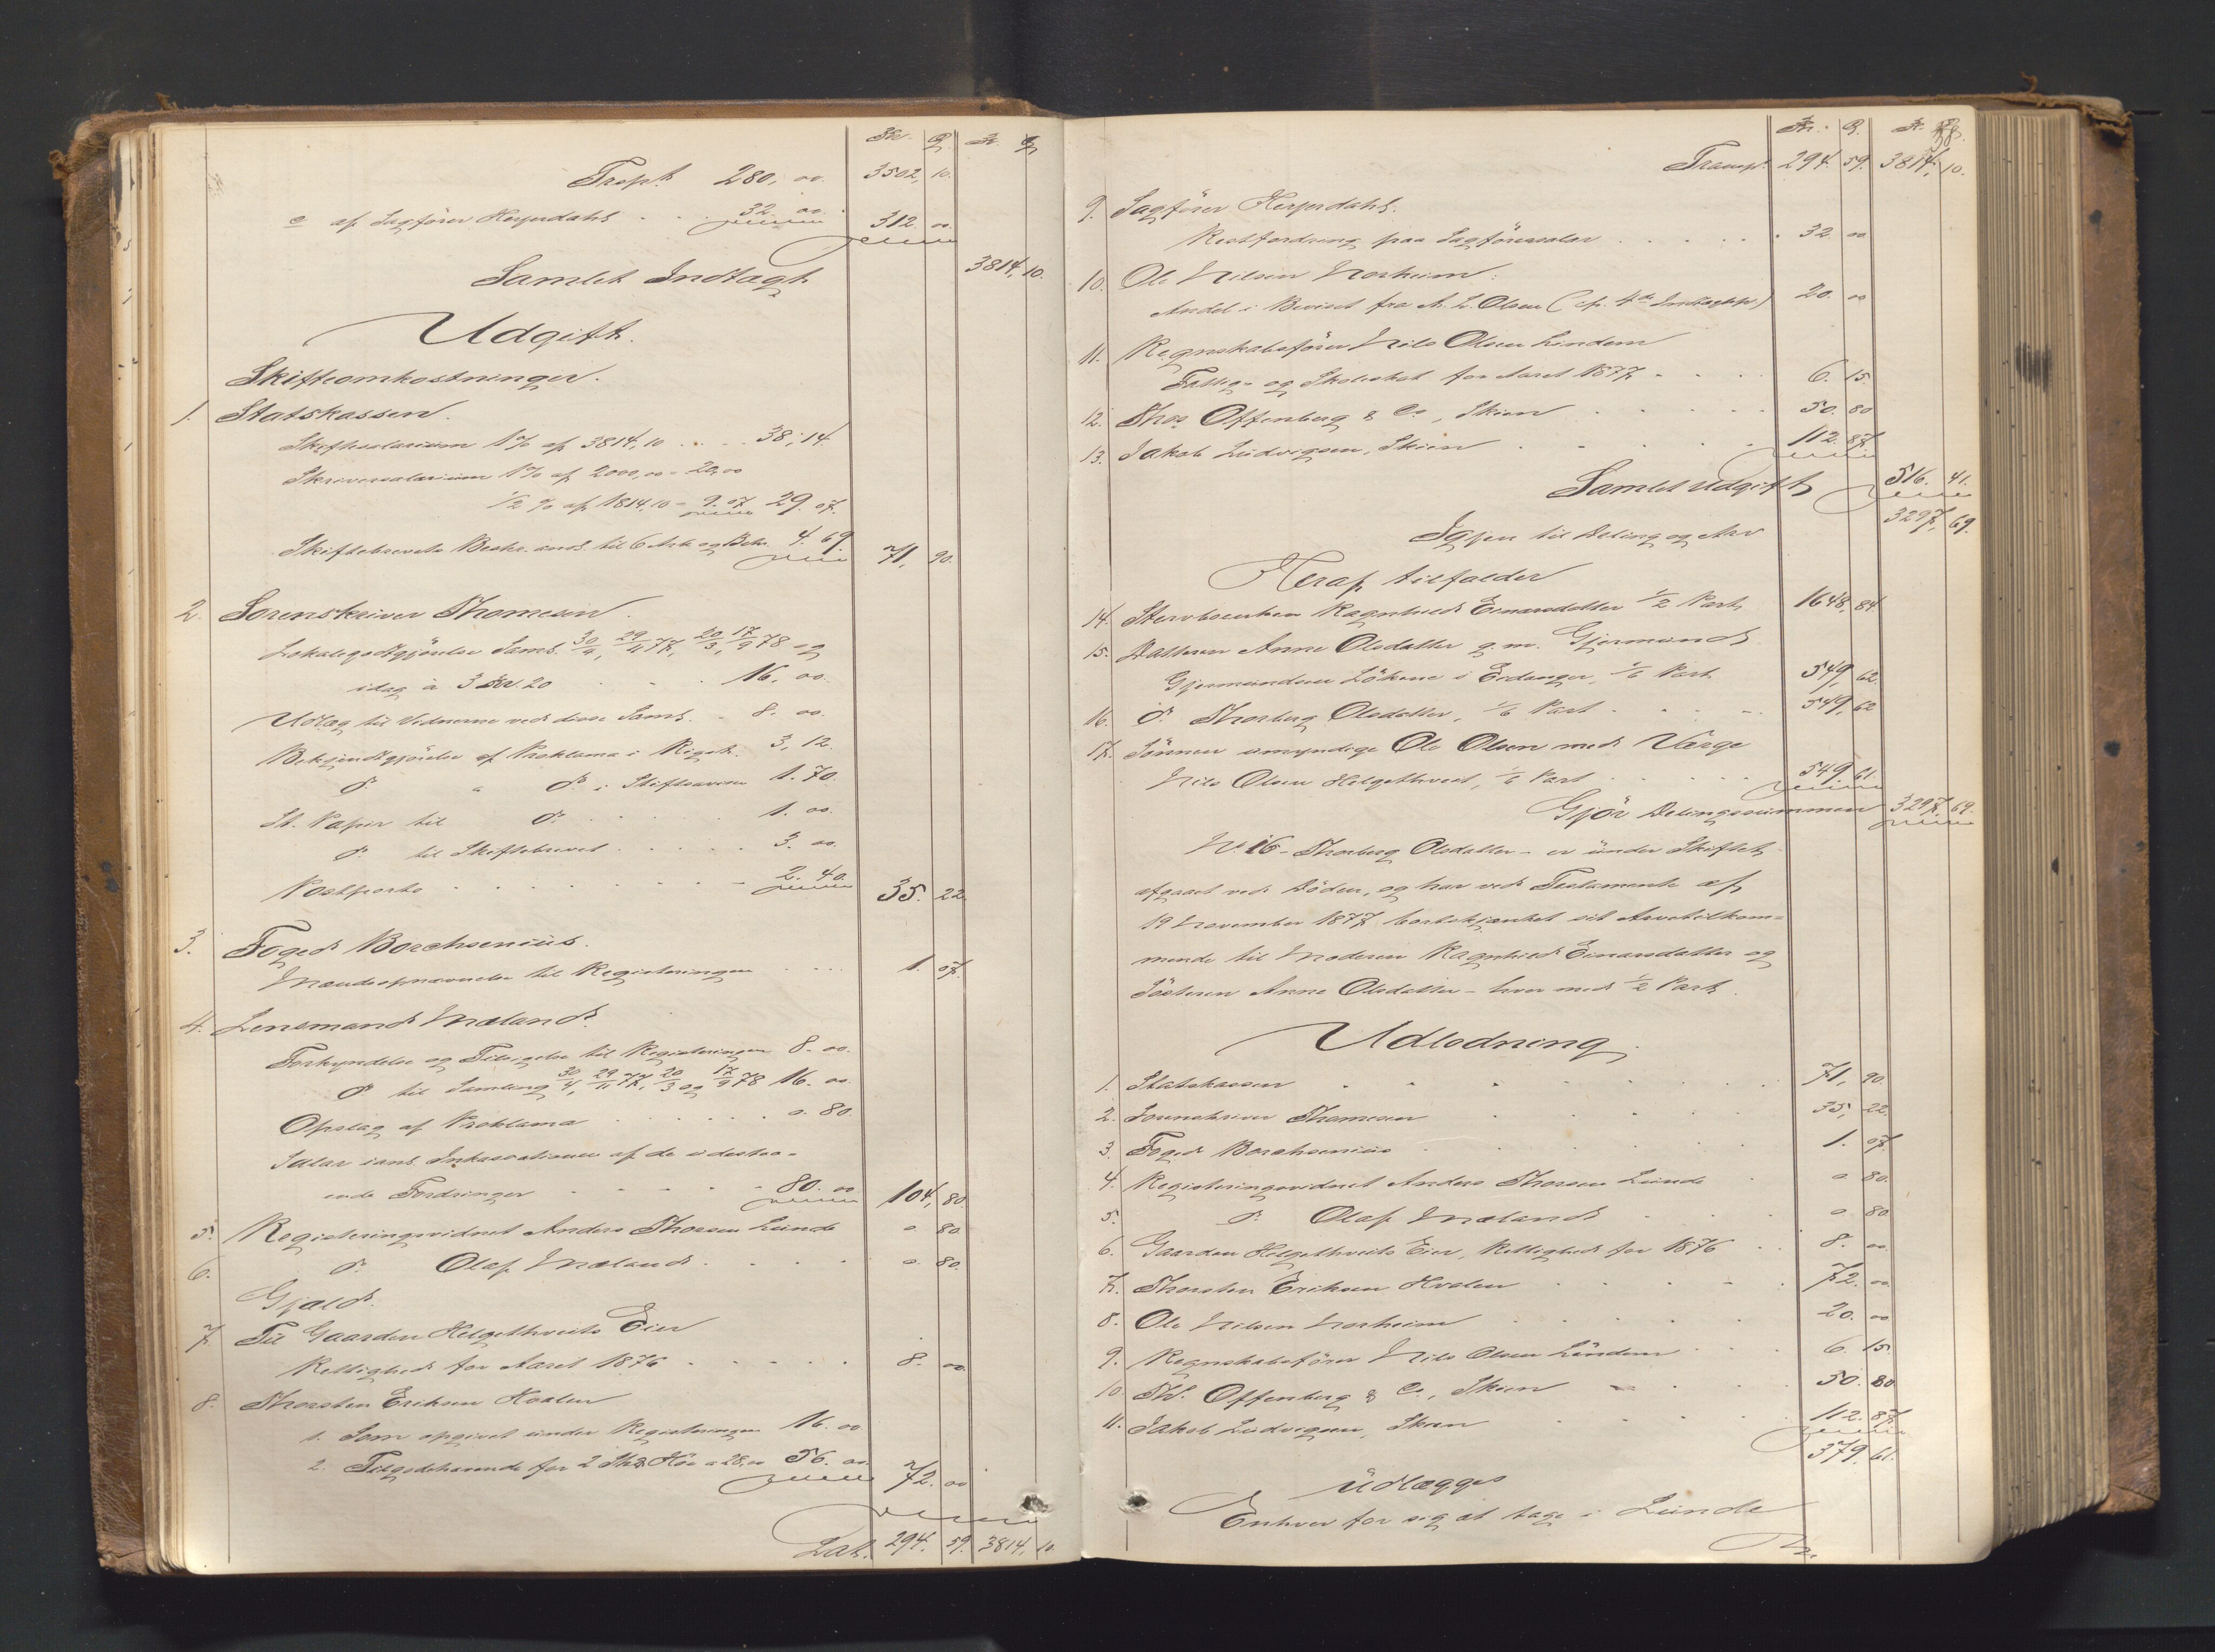 Kr. Ø Kr. Ø
Trspt. 280, 00. 3502, 10.
c af Sagfører Herjusdahl . . . 32. 00. 312. 00
Samlet Indtægt 3814, 10.
Udgift.
Skifteomkostninger.
1. Statskassen.
Skiftesalarium 1% af 3814,10 . . . . 38,14.
Skriversalarium 1% af 2000,00 = 20,00
1/2 % af 1814.10 = 9.07 29.07.
Skiftebrevets Beskr. ans. til 6 Ark og Bek. 4. 69. 71, 90.
2. Sorenskriver Thomesen.
Lokalegodtgjørelse Saml. 30/4, 29/11 77, 20/3, 17/9 78 og
idag à 3 Kr. 20 . . . 16. 00.
Udlæg til Vidnerne ved disse Saml. - 8. 00.
Bekjendtgjørelse af Proklama i Rigst. 3, 12.
do " do i Stiftsavisen 1. 70.
St. Papir til do . . . . . 1. 00.
do til Skiftebrevet . . . . . 3. 00.
Postporto . . . . . . . . . 2. 40. 35. 22.
3. Foged Borchsenius.
Mændsopnævnelse til Registeringen . . . . 1. 07.
4. Lensmand Mæland.
Forkyndelse og Tilsigelse til Registeringen 8. 00.
do til Samling 30/4, 29/11 77, 20/3 og 17/9 78 16. 00.
Opslag af Proklama . . . . . . 0. 80.
Salær ians. Inkassationen af de udestaa-
ende Fordringer . . . . . 80. 00 104, 80
5. Registeringsvidnet Anders Thorsen Lunde 0. 80.
6. do Olaf Mæland . . . . . 0. 80.
Gjæld.
7. Til Gaarden Helgethveits Eier
Rettighed for Aaret 1876 . . . . . . 8. 00.
8. Thorsten Eriksen Hvalen
1. Som opgivet under Registeringen 16. 00
2. Tilgodehavende for 2 Hø a 28,00 56. 00 72. 00
Lat. 294. 59. 3814, 10.
Kr. Ø. Kr. Ø.
Transp. 294. 59. 3814, 10.
9. Sagfører Herjusdahl.
Restfordring paa Sagførersalær . . . . . . 32. 00
10. Ole Nilsen Norheim.
Andel i Beviset fra A. L. Olsen (cfr. 4de Indtægtsp.) 20. 00
11. Regnskabsfører Nils Olsen Lindem
Fattig- og Skoleskat for Aaret 1877 . . . . 6. 15.
12. Thos Offenberg & Co, Skien . . . . . 50. 80
13. Jakob Ludvigsen, Skien . . . . . 112. 87.
Samlet udgift 516. 41.
Igjen til Deling og Arv 3297, 69.
Heraf tilfalder
14. Stervboenken Ragnhild Einarsdatter 1/2 Part, 1648, 84.
15. Datteren Anne Olsdatter g. m. Gjermund
Gjermundsen Løkene i Eidanger, 1/6 Part 549, 62.
16. do Thorberg Olsdatter, 1/6 Part . . . . . 549, 62
17. Sønnen umyndige Ole Olsen med Værge
Nils Olsen Helgethveit, 1/6 Part . . . . . 549. 61.
Gjør Delingssummen 3297, 69.
No 16 - Thorberg Olsdatter - er under Skiftet
afgaaet ved Døden, og har ved Testamente af
19 November 1877 bortskjænket sit Arvetilkom-
mende til Moderen Ragnhild Einarsdatter og
Søsteren Anne Olsdatter - hver med 1/2 Part.
Udlodning.
1. Statskassen . . . . . . . 71, 90.
2. Sorenskriver Thomesen . . . . . 35, 22.
3. Foged Borchsenius . . . . . . 1. 07.
4. Registeringsvidnet Anders Thorsen Lunde . 0 80.
5. do Olaf Mæland . . . . 0 80
6. Gaarden Helgethveits Eier, Rettighed for 1876 . . 8. 00
7. Thorsten Eriksen Hvalen . . . . . . 72. 00
8. Ole Nilsen Norheim . . . . . . 20. 00
9. Regnskabsfører Nils Olsen Lindem . . . . 6. 15.
10. Ths. Offenberg & Co., Skien . . . . 50. 80
11. Jakob Ludvigsen, Skien . . . . . 112. 87.
379. 61.
Udlægges
Enhver for sig at tage i Lunde